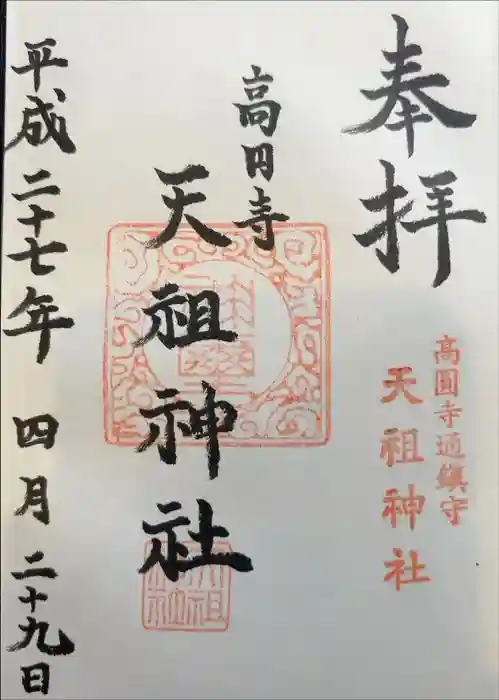 奉拝
高圓寺通鎮守
天祖神社
高円寺
天祖神社
平成二十七年 四月二十九日